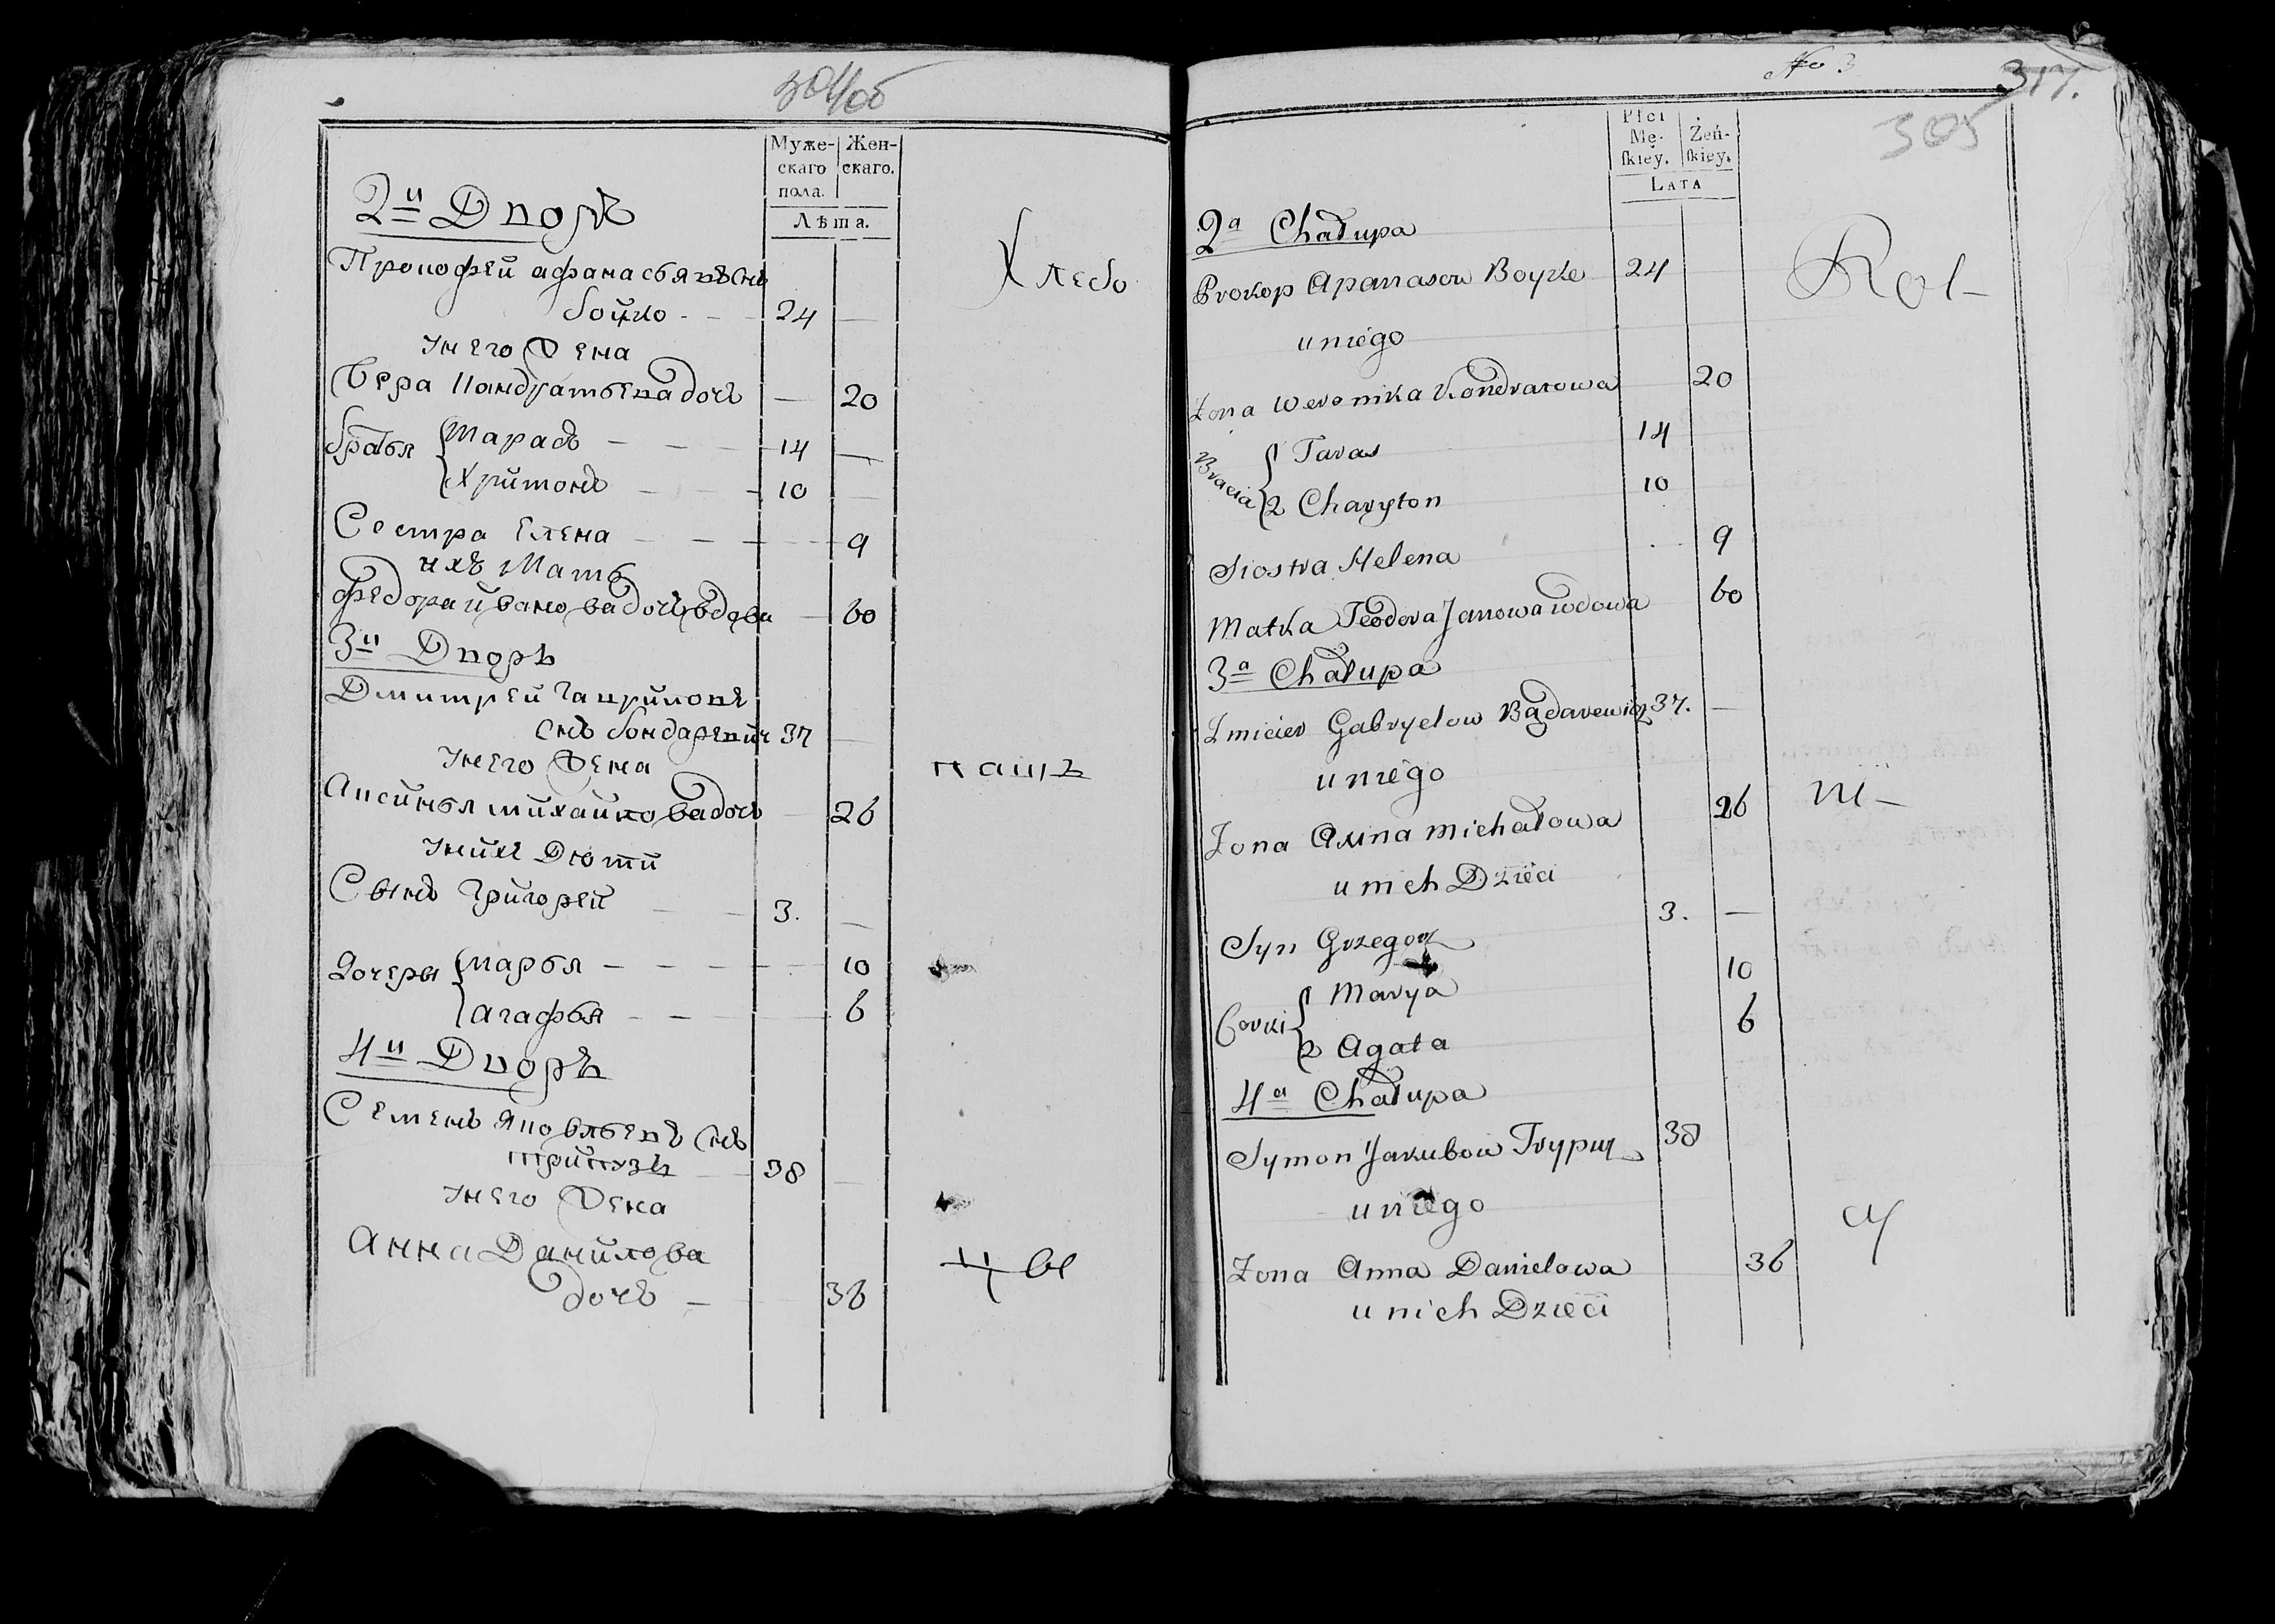 304об
Муже-
скаго
пола.
Жен-
скаго.
Лѣта.
2й Дворъ
Хлебо
Прокофей афанасьявъ снъ
бойко - - 24 —
Унего Жена
Вера Кандратьева дочъ — 20
братья { Тарасъ - - - 14 —
{ Хритонъ - - - 10 —
Сестра Елена - - - 9
ихъ Мать
федора ивановa дочъ вдова — 60
3й Дворъ
Дмитрей Гаврилови
снъ бондаревич 37 —
Унего Жена
пашъ
Аксинья михайлова дочъ — 26
Унихъ Дюти
Сынъ Григорей - - 3. —
Дочеры { марья - - - 10
{ агафья - - - 6
4й Дворъ
Семенъ яковльевъ снъ
38 —
Унего Жена
Анна Данилова
цы
дочъ - 36
No 3
317.
305
Płci
Mę-
skiey.
Żeń-
skiey.
LATA
2a Chałupa
Prokop Apanasow Boyko 24
Rol-
uniego
Żona Weronika Kondratowa 20
Bracia { Taras 14
{ 2 Charyton 10
Siostra Helena 9
Matka Teodora Janowa wdowa 60
3a Chałupa
Zmicier Gabryelow Bądarewicz 37. —
uniego
ni-
Żona Axina Michałowa 26
unich Dzieci
Syn Grzegorz 3. —
Corki { Marya 10
{ 2 Agata 6
4a Chałupa
Symon Jakubow 38
uniego
cy
Żona Anna Danielowa 36
unich Dzieci